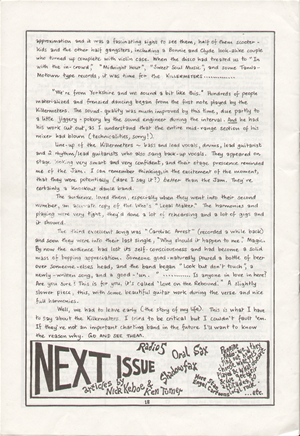 approximation and it was a fascinating sight to see them, half of them scooter-
kids and the other half gangsters, including a Bonnie and Clyde look-alike couple
who turned up complete with violin case. When the disco had treated us to "In
with the in-crowd", "Midnight Hour", "Sweet Soul Music", and some Tamla-
Motown type records, it was time for the KILLERMETERS.............
"We're from Yorkshire and we sound a bit like this." Hundreds of people
materialised and frenzied dancing began from the first note played by the
Killermeters. The sound quality was much improved by this time, due partly to
a little jiggery-pokery by the sound engineer during the interval. And he had
his work cut out, as I understand that the entire mid-range section of his
mixer had blown (technicalities, sorry!).
Line-up of the Killermeters - bass and lead vocals, drums, lead guitarist
and 2 rhythm/lead guitarists who also sang back-up vocals. They appeared on
stage looking very smart and very confident, and their stage presence reminded
me of the Jam. I can remember thinking, in the excitement of the moment,
that they were potentially (dare I say it!) better than the Jam. They're
certainly a knockout dance band.
The audience loved them, especially when they went into their second
number, an accurate copy of the Who's "Legal Matter." The harmonies and
playing were very tight, they'd done a lot of rehearsing and a lot of gigs and
it showed.
The third excellent song was "Cardiac Arrest" (recorded a while back)
and soon they were into their last single, "Why should it happen to me". Magic.
By now the audience had lost its self-consciousness and had become a solid
mass of bopping appreciation. Someone good-naturedly poured a bottle of beer
over someone-else's head, and the band began "Look but don't touch", a
newly-written song, and a good 'un. "............. Is anyone in love in here?
Are you sure! This is for you, it's called "Love on the Rebound." A slightly
slower piece, this, with some beautiful guitar work during the verse and nice
full harmonies.
Well, we had to leave early (the story of my life). This is what I have
to say about the Killermeters. I tried to be critical but I couldn't fault 'em.
If they're not an important charting band in the future I'll want to know
the reason why. GO AND SEE THEM.
NEXT ISSUE
Radio 5
Oral Sax
articles by Nick Kabot &
Ken Tomer
...etc.
18